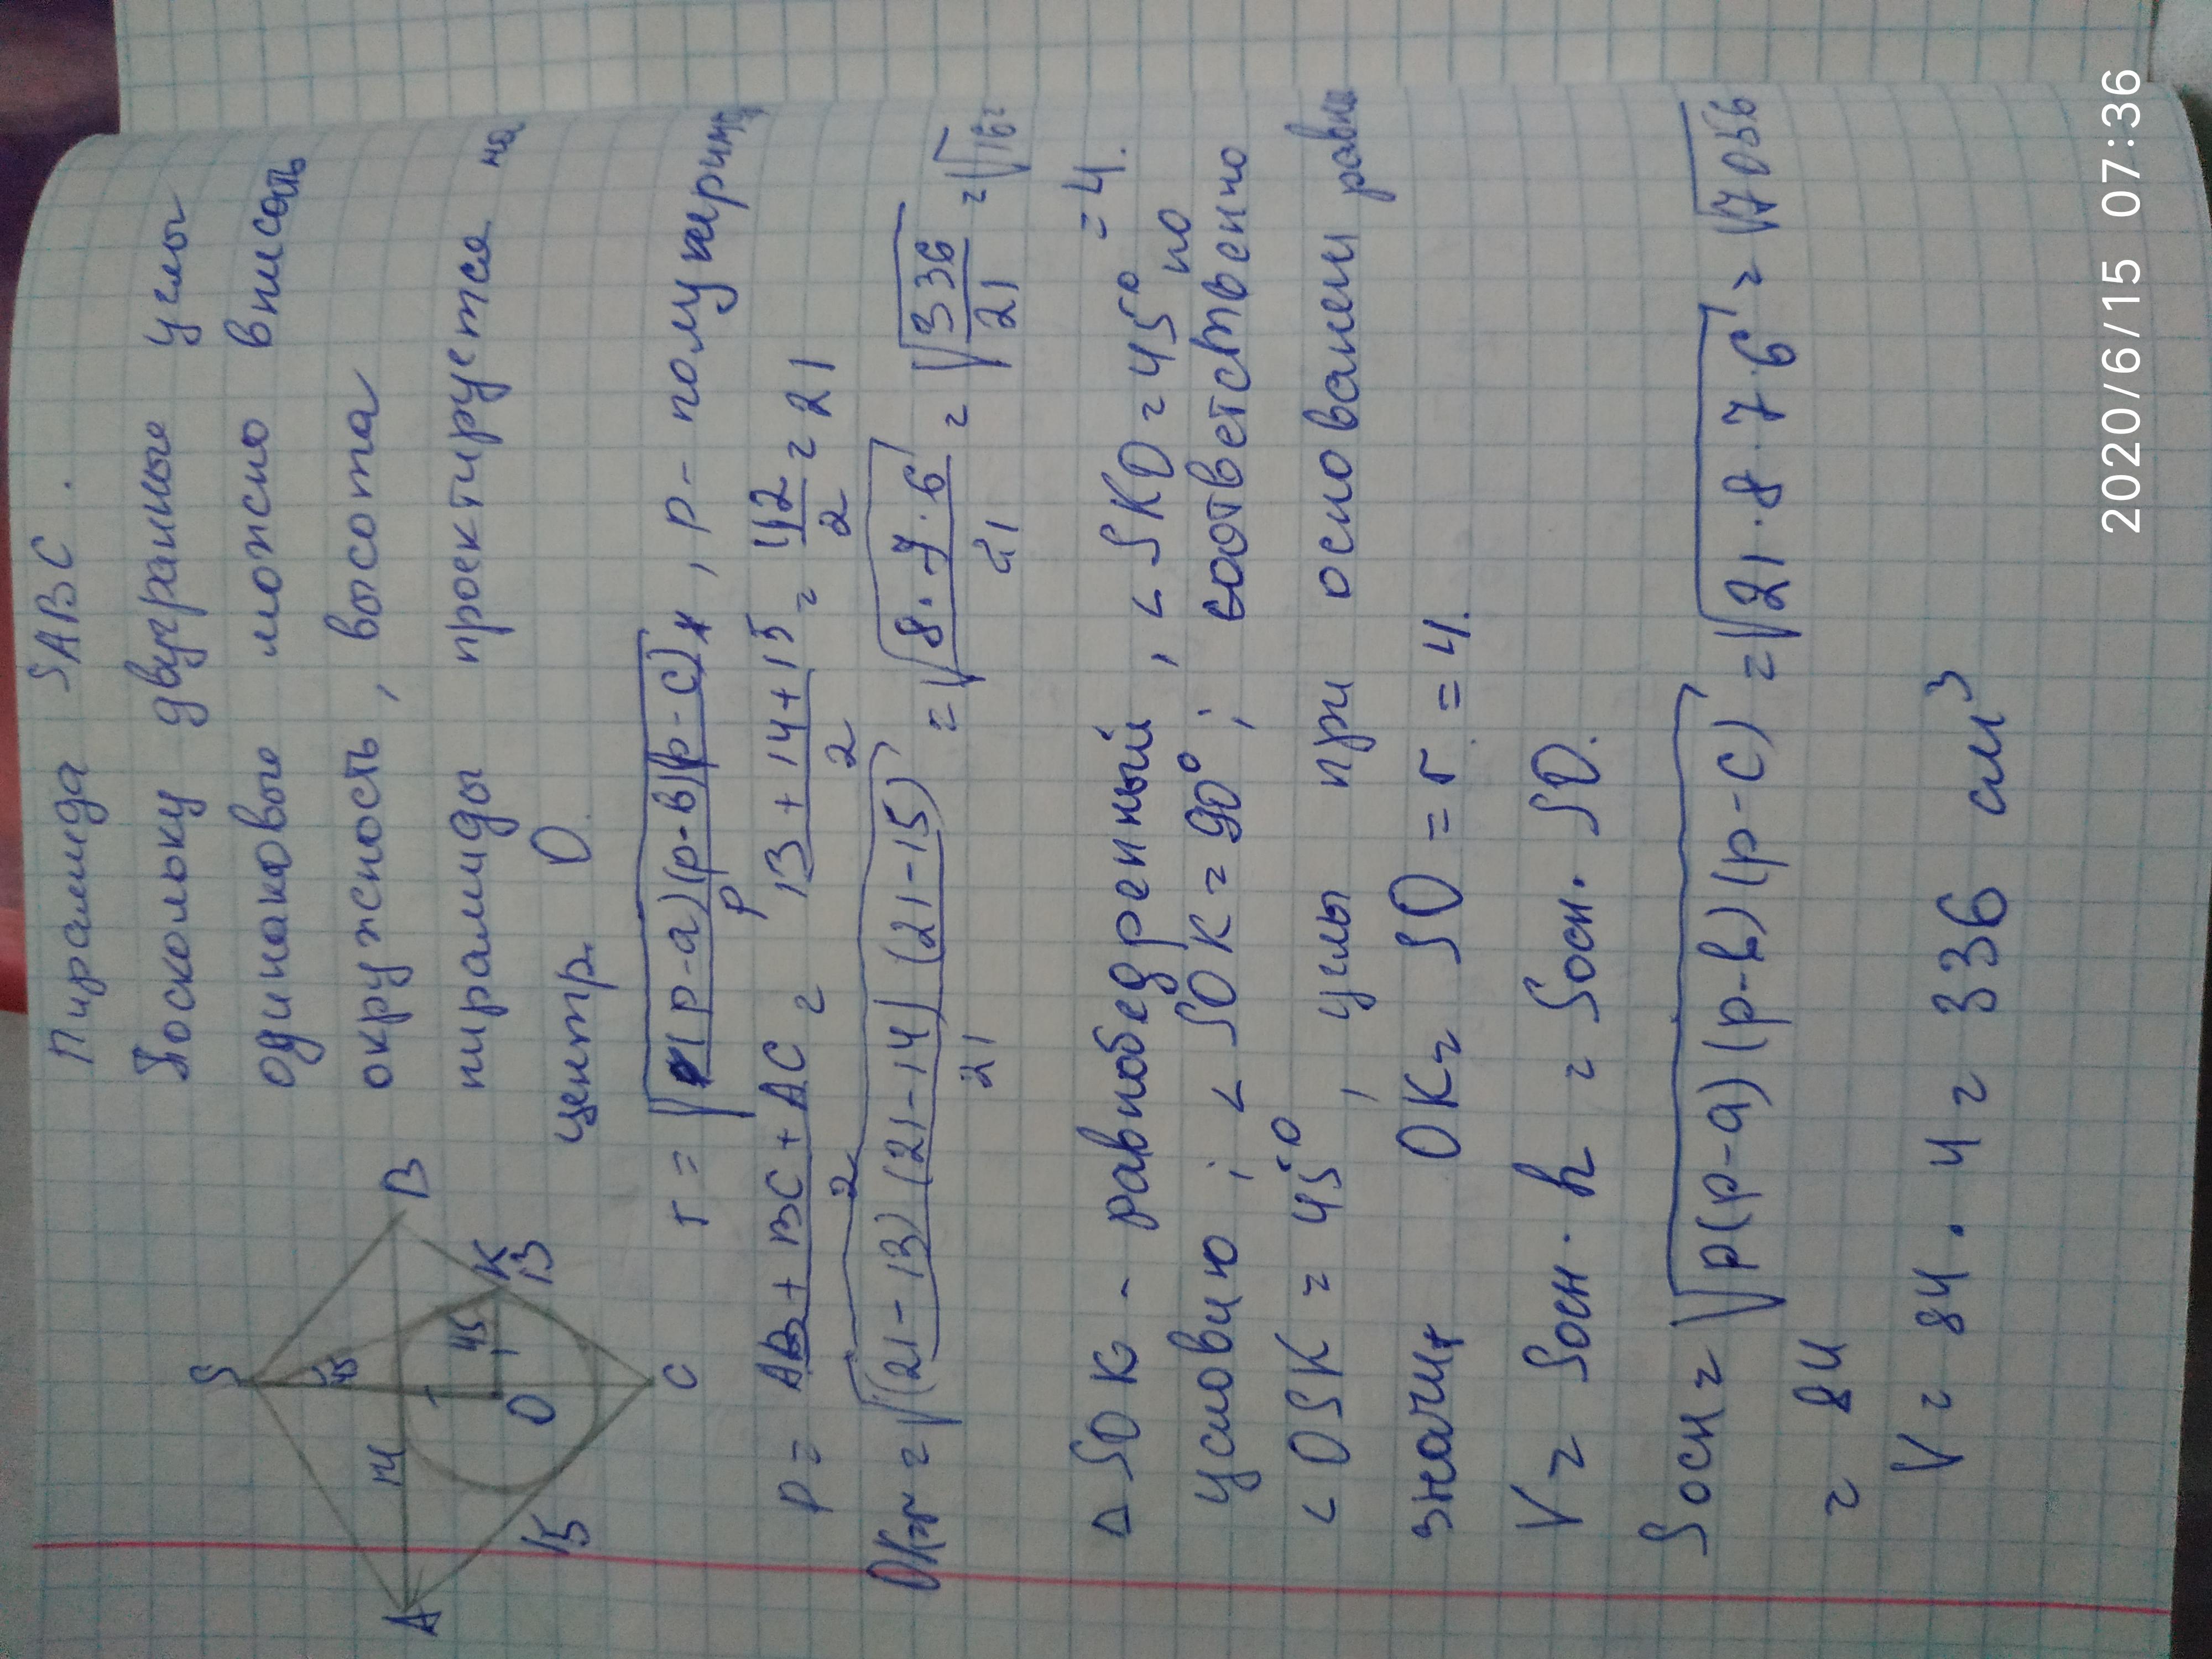 Пирамида SABC.
Поскольку двугранные углы
одинаковые можно вписать
окружность, высота
пирамиды проектируется на
центр O.
S
45
14
A
B
45
O
K
13
15
C
r = √(p-a)(p-b)(p-c)/p, p- полупериме
p = AB + BC + AC / 2 = 13 + 14 + 15 / 2 = 42 / 2 = 21
OK = √(21-13)(21-14)(21-15) / 21 = √8·7·6 / 21 = √336 / 21 = √16 =
= 4.
△ SOK - равнобедренный, ∠ SKO = 45° по
условию; ∠ SOK = 90°; соответственно
∠ OSK = 45°, углы при основании равны
значит OK = SO = r = 4.
V = Sосн · h = Sосн. SO.
Sосн = √p(p-a)(p-b)(p-c) = √21·8·7·6 = √7056
= 84
V = 84 · 4 = 336 см³
2020/6/15 07:36